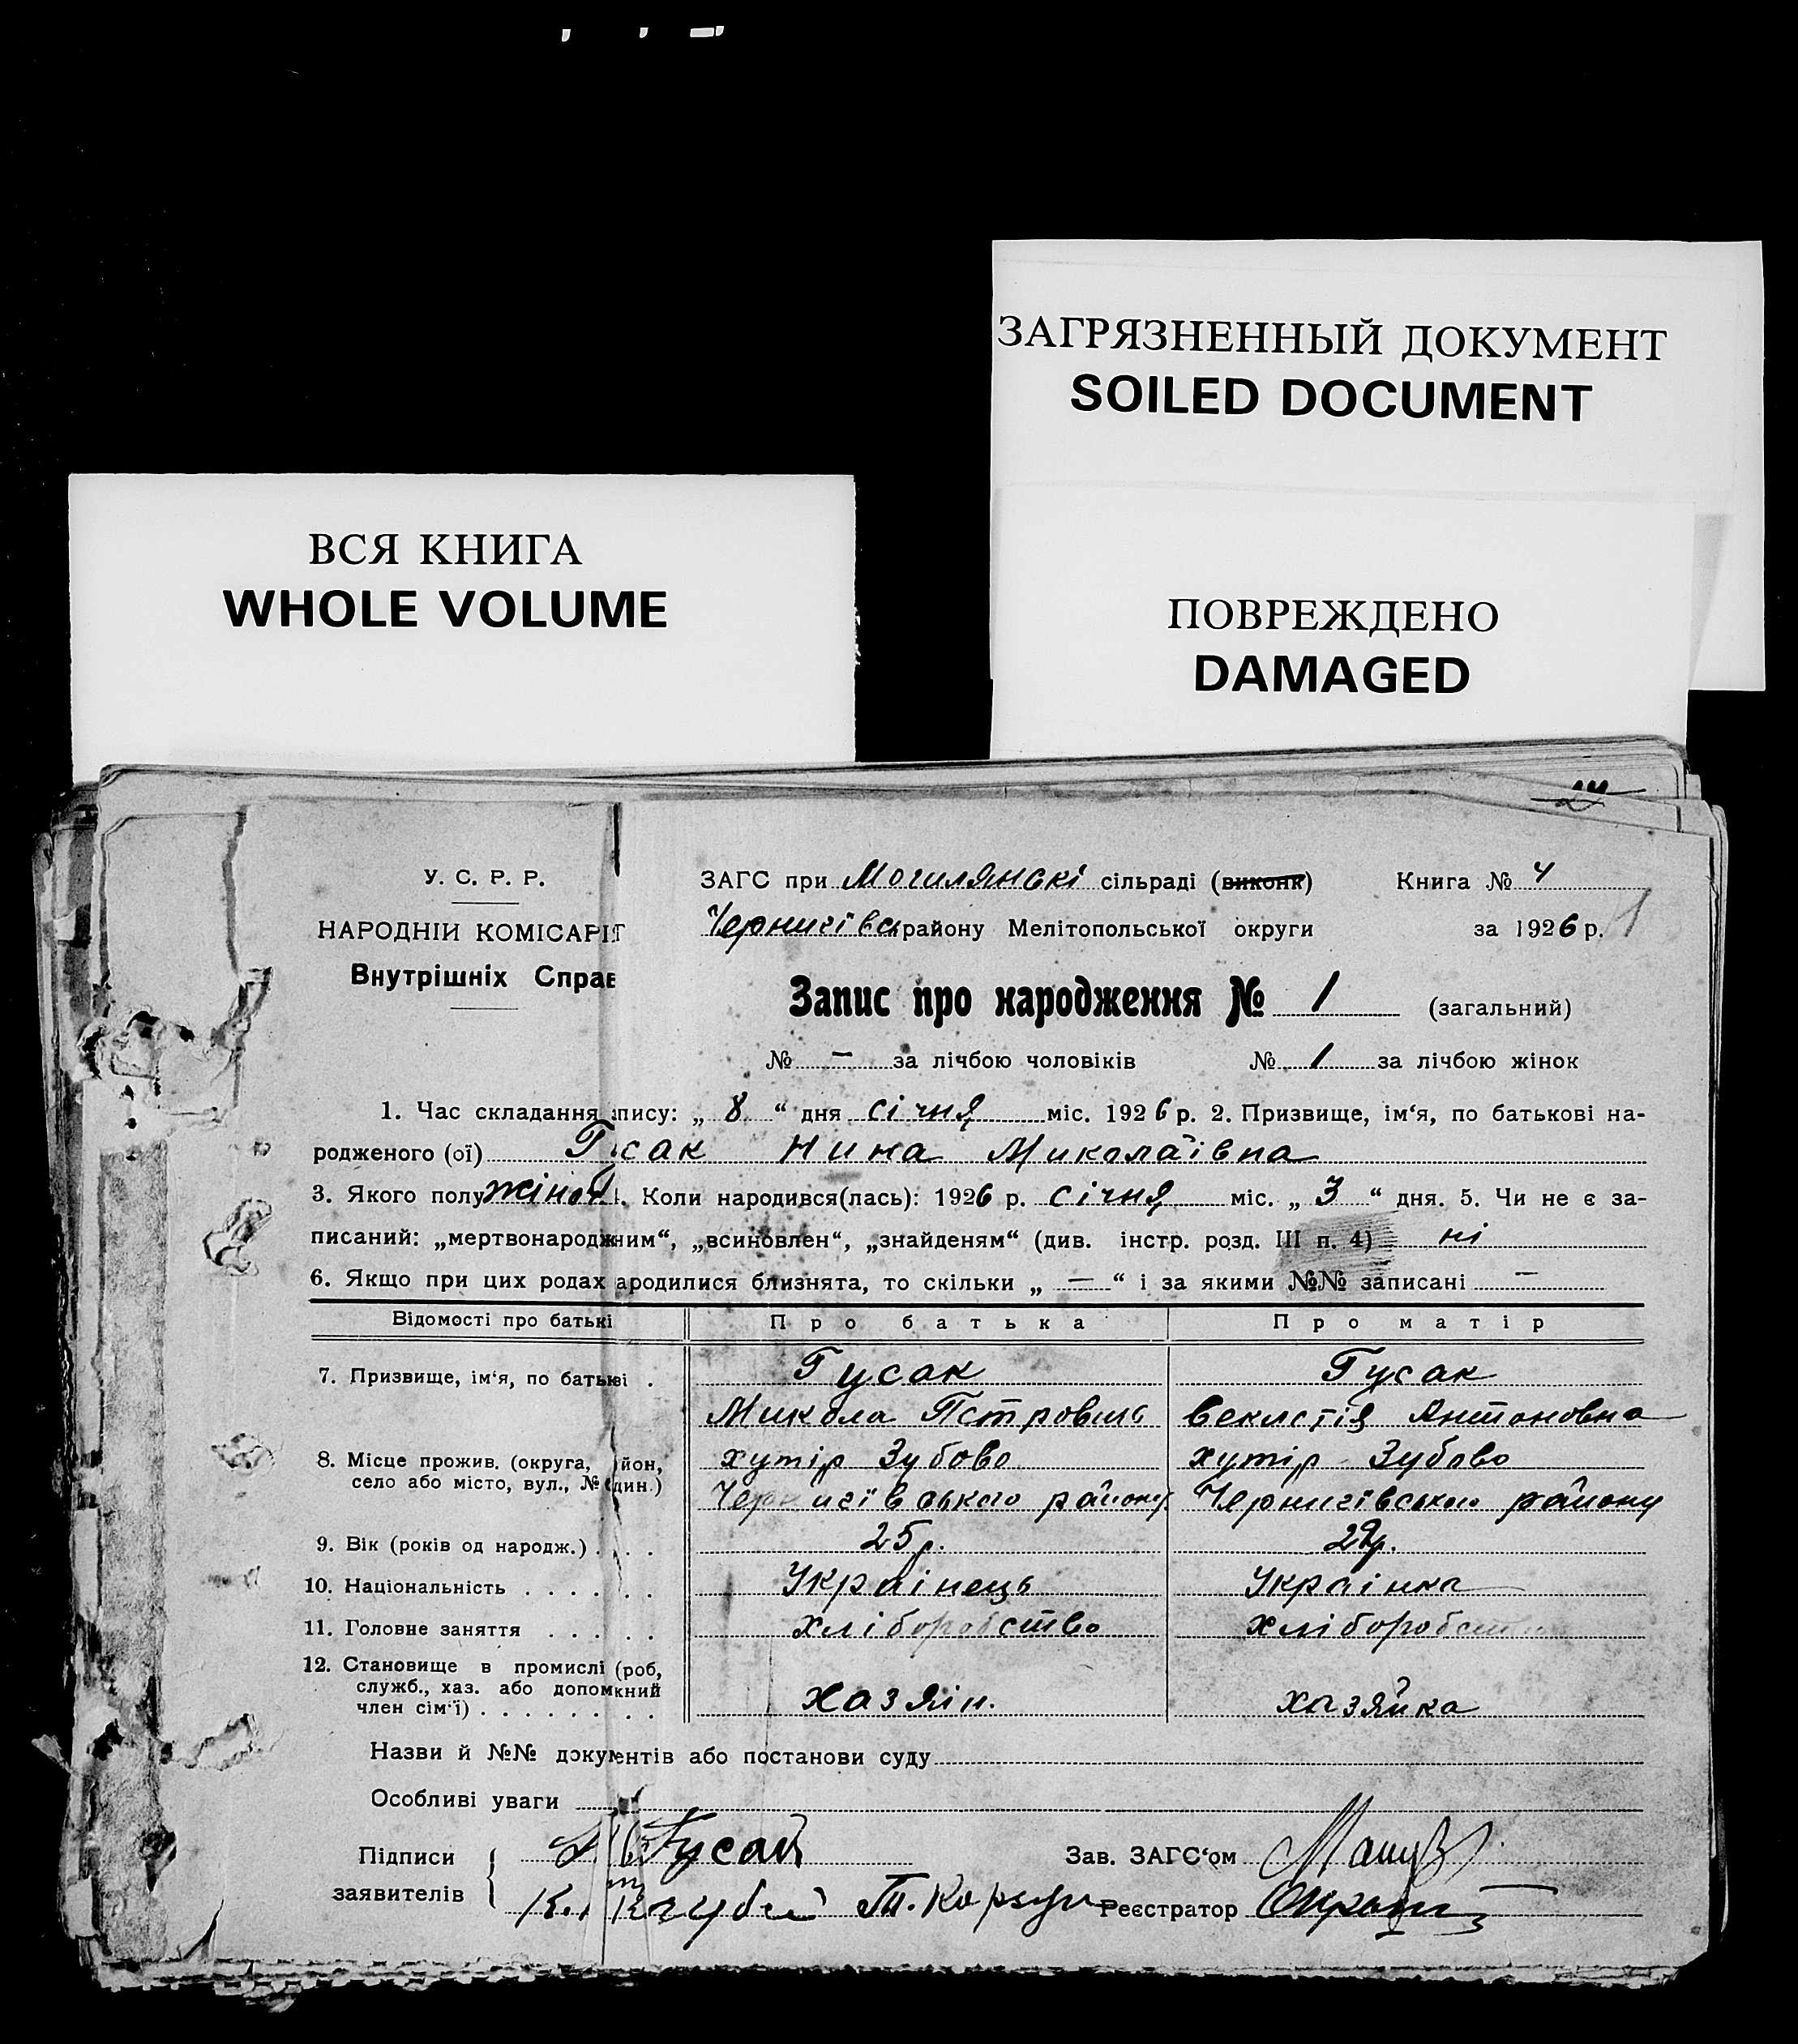 ЗАГРЯЗНЕННЫЙ ДОКУМЕНТ
SOILED DOCUMENT
ВСЯ КНИГА
WHOLE VOLUME
ПОВРЕЖДЕНО
DAMAGED
У. С. Р. Р.
НАРОДНІЙ КОМІСАРІЯТ
Внутрішніх Справ
ЗАГС при Могилянскі сільраді (виконк) Книга № 4
Чернигівсь району Мелітопольської округи за 1926 р. 1
Запис про народження № 1 (загальний)
№ — за лічбою чоловіків № 1 за лічбою жінок
1. Час складання запису: „ 8 “ дня січня міс. 1926 р. 2. Призвище, ім‘я, по батькові на-
родженого (ої) Гусак Нина Миколаївна
3. Якого полу жіноч 4. Коли народився(лась): 1926 р. січня міс. „ 3 “ дня. 5. Чи не є за-
писаний: „мертвонародженим“, „всиновлен“, „знайденям“ (див. інстр. розд. III п. 4) ні
6. Якщо при цих родах народилися близнята, то скільки „ — “ і за якими №№ записані —
Відомості про батьків Про батька Про матір
7. Призвище, ім‘я, по батькові . Гусак Гусак
Микола Петрович Антоновна
8. Місце прожив. (округа, район, хутір Зубово хутір Зубово
село або місто, вул., № един.) Чернигівського району Чернигівського району
9. Вік (років од народж.) . . . 25 р. 22р.
10. Національність . . . . . Українець Українка
11. Головне заняття . . . . . хліборобство хліборобство
12. Становище в промислі (роб,
служб., хаз. або допоможний
член сім‘ї) . . . . . . . . хазяїн. хазяйка
Назви й №№ документів або постанови суду
Особливі уваги
Підписи Гусак Зав. ЗАГС‘ом
заявителів К. Кочубей Т. Корзун Реєстратор